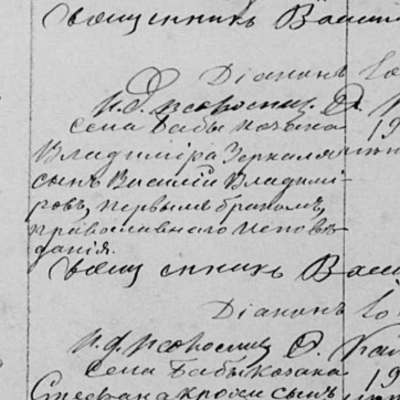 Священникъ Васи
Діаконъ
И. д. псаломщ. Ѳ.
Села Бабы Козака 19
Владиміра Зеркаля
сынъ Василій Владимі-
ровъ, первымъ бракомъ,
православнаго исповѣ-
данія.
Священникъ Васи
Діаконъ
И. д. псаломщ. Ѳ.
Села Бабы Козака 19
Стефана сынъ